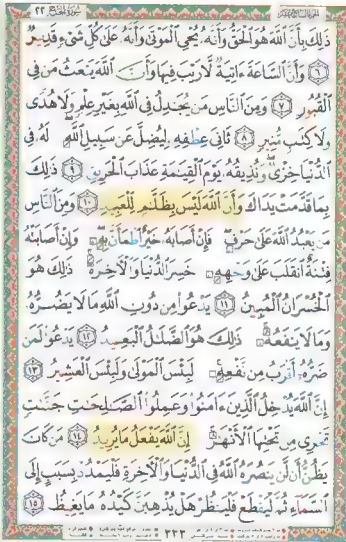 ٢٢ سورة الحج
ذَٰلِكَ بِأَنَّ ٱللَّهَ هُوَ ٱلْحَقُّ وَأَنَّهُۥ يُحْىِ ٱلْمَوْتَىٰ وَأَنَّهُۥ عَلَىٰ كُلِّ شَىْءٍ قَدِيرٌ
٦ وَأَنَّ ٱلسَّاعَةَ ءَاتِيَةٌ لَّا رَيْبَ فِيهَا وَأَنَّ ٱللَّهَ يَبْعَثُ مَن فِى
ٱلْقُبُورِ ٧ وَمِنَ ٱلنَّاسِ مَن يُجَٰدِلُ فِى ٱللَّهِ بِغَيْرِ عِلْمٍ وَلَا هُدًى
وَلَا كِتَٰبٍ مُّنِيرٍ ٨ ثَانِىَ عِطْفِهِۦ لِيُضِلَّ عَن سَبِيلِ ٱللَّهِ لَهُۥ فِى
ٱلدُّنْيَا خِزْىٌ وَنُذِيقُهُۥ يَوْمَ ٱلْقِيَٰمَةِ عَذَابَ ٱلْحَرِيقِ ٩ ذَٰلِكَ
بِمَا قَدَّمَتْ يَدَاكَ وَأَنَّ ٱللَّهَ لَيْسَ بِظَلَّٰمٍ لِّلْعَبِيدِ ١٠ وَمِنَ ٱلنَّاسِ
مَن يَعْبُدُ ٱللَّهَ عَلَىٰ حَرْفٍ فَإِنْ أَصَابَهُۥ خَيْرٌ ٱطْمَأَنَّ بِهِۦ وَإِنْ أَصَابَتْهُ
فِتْنَةٌ ٱنقَلَبَ عَلَىٰ وَجْهِهِۦ خَسِرَ ٱلدُّنْيَا وَٱلْءَاخِرَةَ ذَٰلِكَ هُوَ
ٱلْخُسْرَانُ ٱلْمُبِينُ ١١ يَدْعُوا۟ مِن دُونِ ٱللَّهِ مَا لَا يَضُرُّهُۥ
وَمَا لَا يَنفَعُهُۥ ذَٰلِكَ هُوَ ٱلضَّلَٰلُ ٱلْبَعِيدُ ١٢ يَدْعُوا۟ لَمَن
ضَرُّهُۥٓ أَقْرَبُ مِن نَّفْعِهِۦ لَبِئْسَ ٱلْمَوْلَىٰ وَلَبِئْسَ ٱلْعَشِيرُ ١٣
إِنَّ ٱللَّهَ يُدْخِلُ ٱلَّذِينَ ءَامَنُوا۟ وَعَمِلُوا۟ ٱلصَّٰلِحَٰتِ جَنَّٰتٍ
تَجْرِى مِن تَحْتِهَا ٱلْأَنْهَٰرُ إِنَّ ٱللَّهَ يَفْعَلُ مَا يُرِيدُ ١٤ مَن كَانَ
يَظُنُّ أَن لَّن يَنصُرَهُ ٱللَّهُ فِى ٱلدُّنْيَا وَٱلْءَاخِرَةِ فَلْيَمْدُدْ بِسَبَبٍ إِلَى
ٱلسَّمَآءِ ثُمَّ لْيَقْطَعْ فَلْيَنظُرْ هَلْ يُذْهِبَنَّ كَيْدُهُۥ مَا يَغِيظُ ١٥
٣٣٣